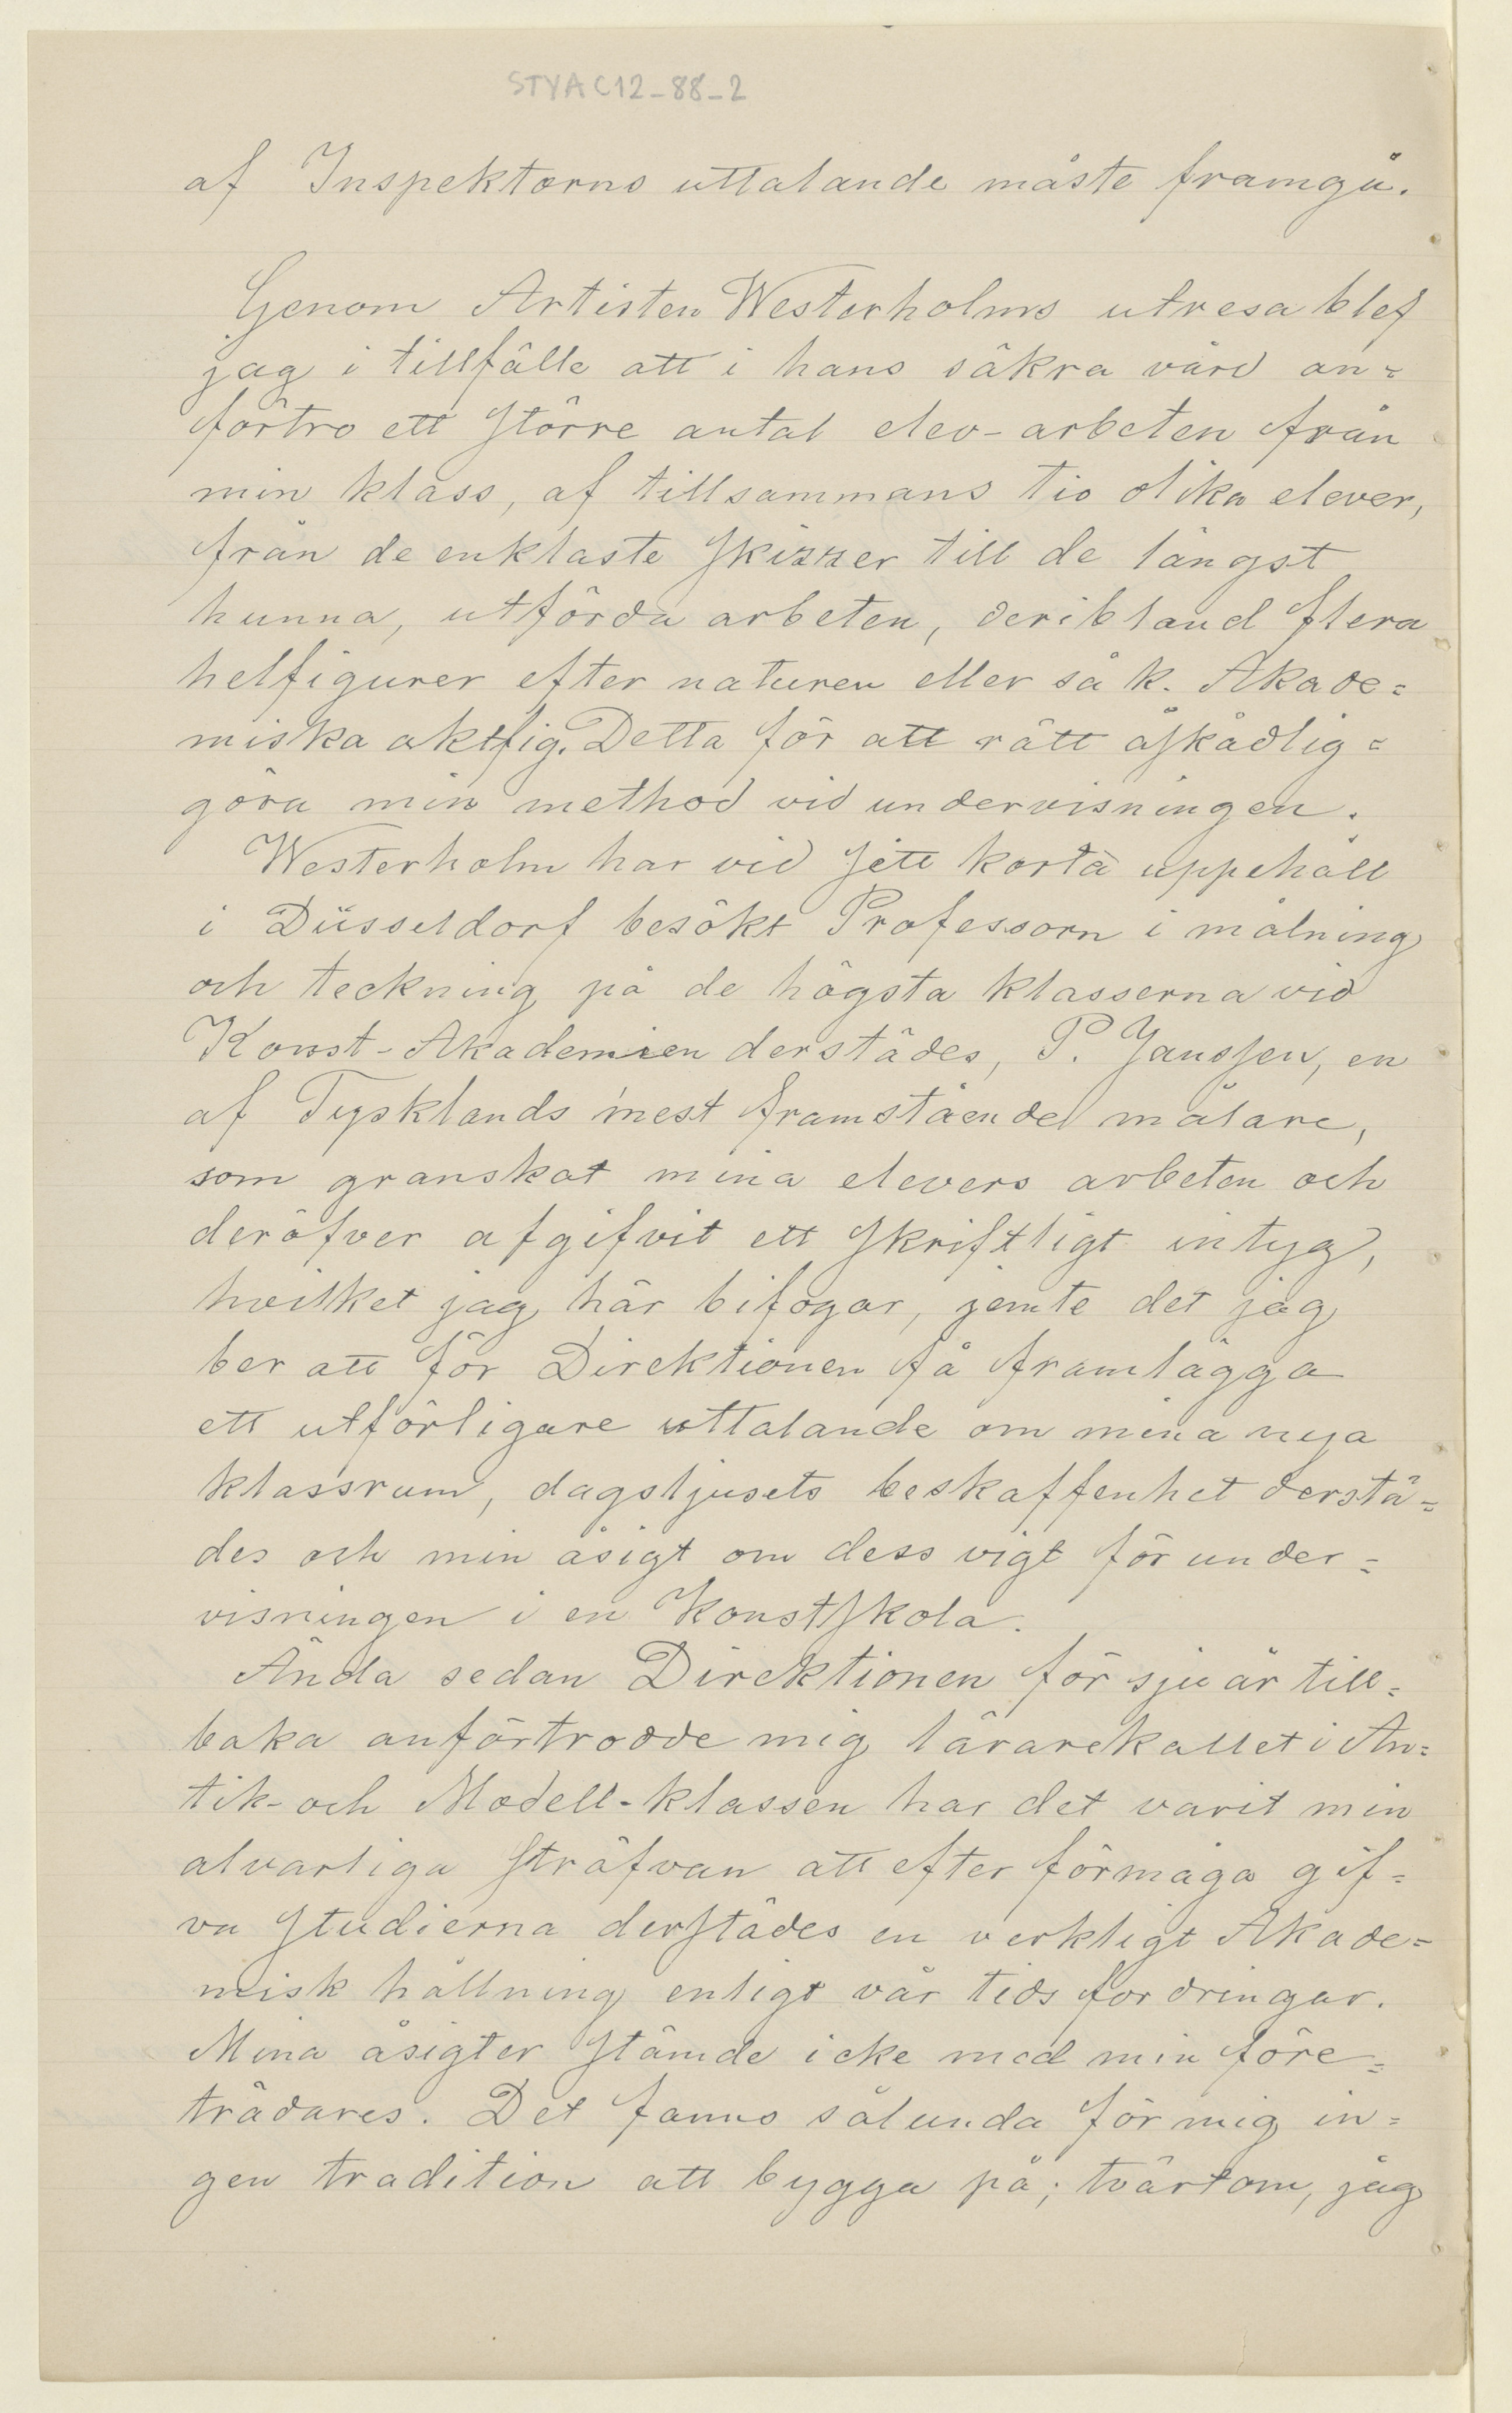 STYAC12_88_2
af Inspektorns uttalande måste framgå.
Genom Artisten Westerholms utresa blef
jag i tillfälle att i hans säkra vård an=
förtro ett större antal elev-arbeten från
min klass, af tillsammans tio olika elever,
från de enklaste skizzer till de längst
hunna, utförda arbeten, deribland flera
helfigurer efter naturen eller så k. Akade=
miska aktfig. Detta för att rätt åskådlig=
göra min method vid undervisningen.
Westerholm har vid sitt korta uppehåll
i Düsseldorf besökt Professorn i målning
och teckning på de högsta klasserna vid
Konst-Akademien derstädes, P. Janssen, en
af Tysklands mest framstående målare,
som granskat mina elevers arbeten och
deröfver afgifvit ett skriftligt intyg,
hvilket jag här bifogar, jemte det jag
ber att för Direktionen få framlägga
ett utförligare uttalande om mina nya
klassrum, dagsljusets beskaffenhet derstä=
des och min åsigt om dess vigt för under=
visningen i en Konstskola.
Ända sedan Direktionen för sju år till=
baka anförtrodde mig lärarekallet i An=
tik- och Modell-klassen har det varit min
alvarliga sträfvan att efter förmåga gif=
va studierna derstädes en verkligt Akade=
misk hållning enligt vår tids fordringar.
Mina åsigter stämde icke med min före=
trädares. Det fanns sålunda för mig in=
gen tradition att bygga på; tvärtom, jag